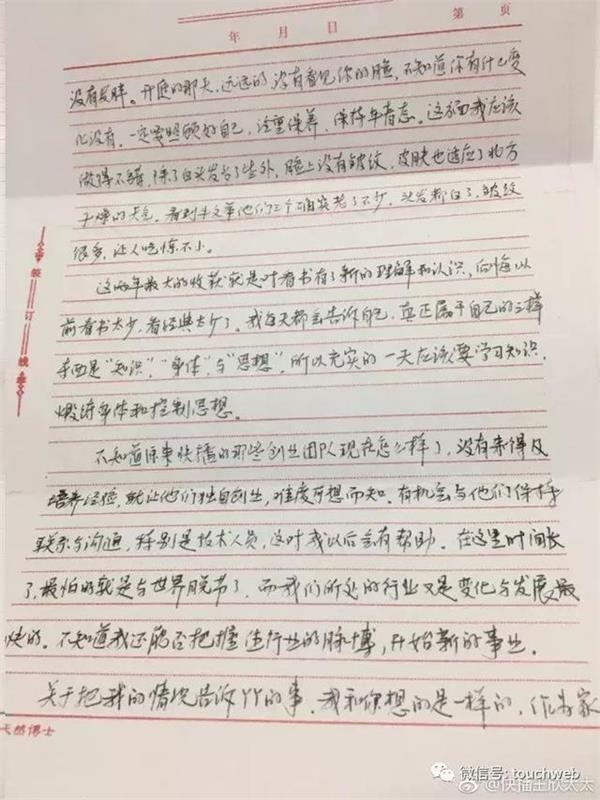 第 页
年 月 日
没有发胖。开庭的那天，远远的没有看见你的脸，不知道你有什么变
化没有，一定要照顾好自己，注重保养，保持年青态。这方面我应该
做得不错，除了白头发多了些外，脸上没有皱纹，皮肤也适应了北方
干燥的天气。看到牛文举他们三个确实老了不少，头发都白了，皱纹
很多，让人吃惊不小。
这两年最大的收获就是对看书有了新的理解和认识，后悔以
前看书太少，看经典太少了。我每天都会告诉自己，真正属于自己的三样
东西是“知识”、“身体”与“思想”，所以充实的一天应该要学习知识，
锻练身体和控制思想。
不知道原来快播的那些创业团队现在怎么样了，没有来得及
培养经验，就让他们独自创业，难度可想而知。有机会与他们保持
联系与沟通，特别是技术人员，这对我以后会有帮助。在这里时间长
了，最怕的就是与世界脱节了，而我们所处的行业又是变化与发展最
快的。不知道我还能否把握住行业的脉搏，开始新的事业。
关于把我的情况告诉YY的事，我和你想的是一样的，作为家
装订线
天然博士
微信号: touchweb
@快播王欣太太